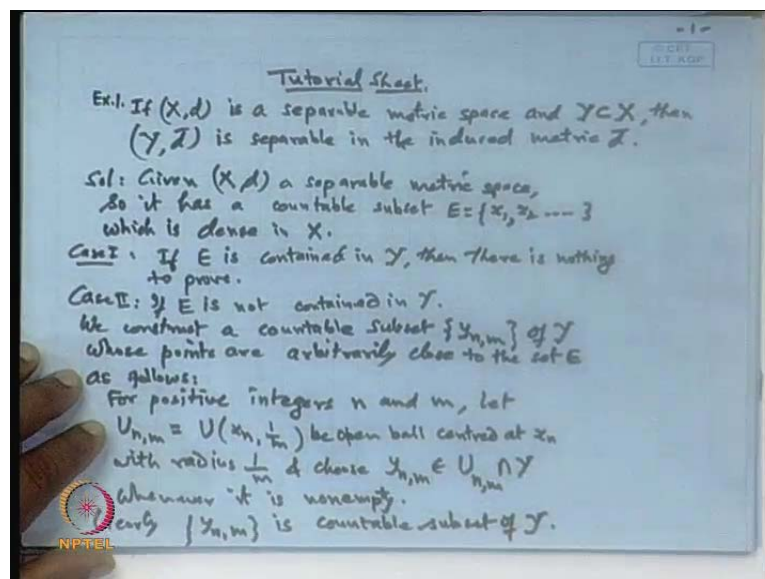 -1-
© CET
I.I.T. KGP
Tutorial Sheet.
Ex.1. If (X,d) is a separable metric space and Y⊂X, then
(Y, d̃) is separable in the induced metric d̃.
Sol: Given (X d) a separable metric space,
So it has a countable subset E = {x₁, x₂ .... }
which is dense in X.
Case I : If E is contained in Y, then there is nothing
to prove.
Case II: If E is not contained in Y.
We construct a countable subset {y_{n,m}} of Y
whose points are arbitrarily close to the set E
as follows:
For positive integers n and m, let
U_{n,m} = U(x_n, 1/m) be open ball centred at x_n
with radius 1/m & choose y_{n,m} ∈ U_{n,m} ∩ Y
whenever it is nonempty.
early {y_{n,m}} is countable subset of Y.
NPTEL